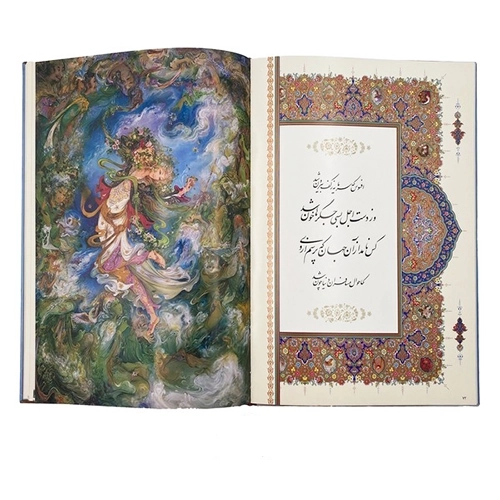 افسوس که سرمایه ز کف بیرون شد
وز دست اجل بسی جگرها خون شد
کس نامد از آن جهان که پرسم از وی
کاحوال مسافران دنیا چون شد